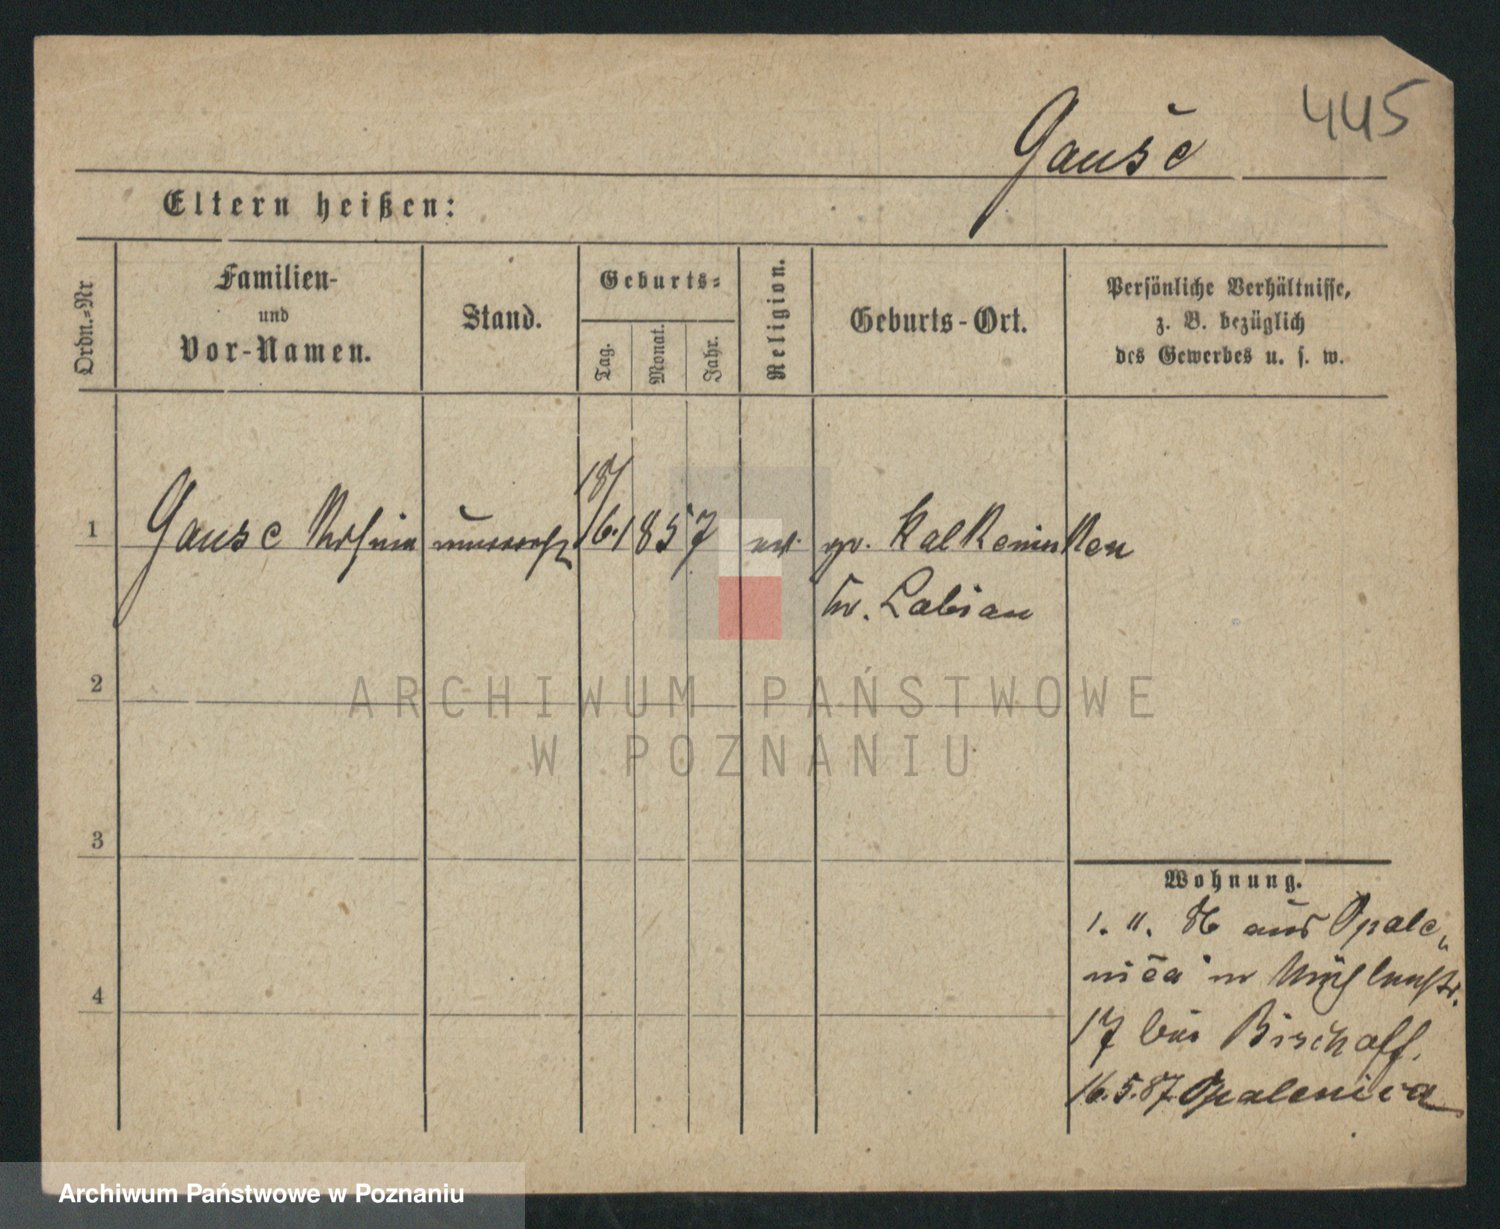 445
Gause
Eltern heißen:
Ordn.-Nr
Familien-
und
Vor-Namen.
Stand.
Geburts-
Tag.
Monat.
Jahr.
Religion.
Geburts-Ort.
Persönliche Verhältnisse,
z. B. bezüglich
des Gewerbes u. s. w.
1 Gause unverehl. 18/6. 1857 ev. gr. Kalkeninken
Kr. Labiau
2
3
4
ARCHIWUM PAŃSTWOWE
W POZNANIU
Wohnung.
1. 11. 86 aus Opale-
nica Mühlenstr.
17 bei Bischoff.
16.5.87. Opalenica
Archiwum Państwowe w Poznaniu